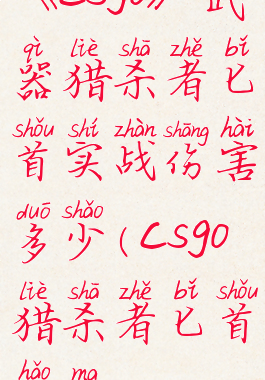 《CSgo》武
qì liè shā zhě bǐ
器猎杀者匕
shǒu shí zhàn shāng hài
首实战伤害
duō shǎo
多少(CSgo
liè shā zhě bǐ shǒu
猎杀者匕首
hǎo ma